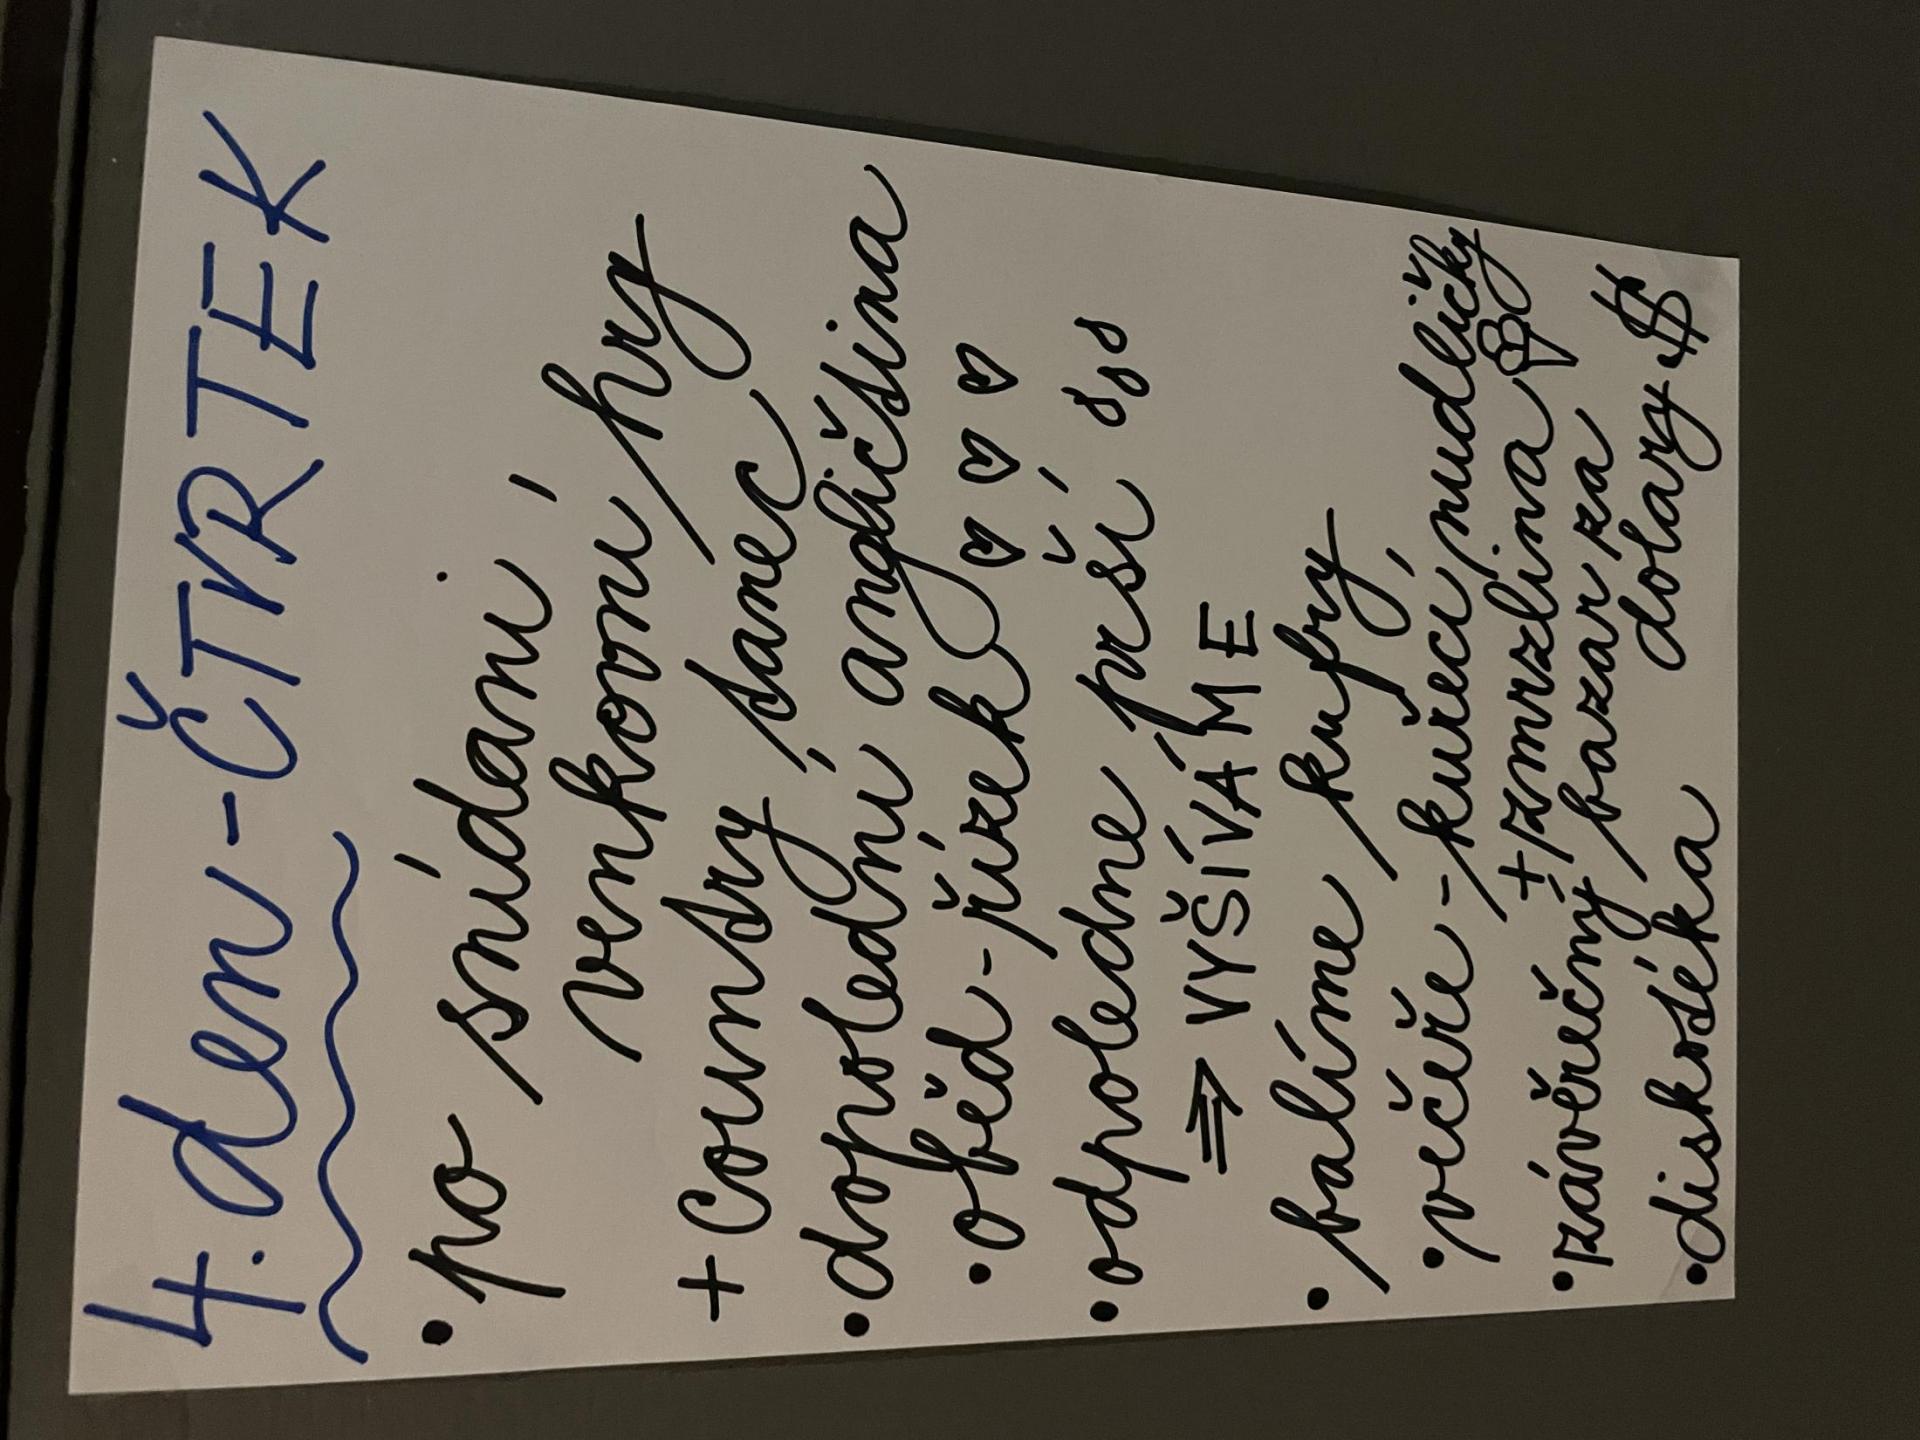 4. den - ČTVRTEK
• po snídani
venkovní hry
+ Country tanec
• dopolední angličtina
• oběd - řízek
• odpoledne prší
⇒ VYŠÍVÁME
• balíme kufry
• večeře - kuřecí nudličky
+ zmrzlina
• závěrečný bazar za
dolary $
• diskotéka